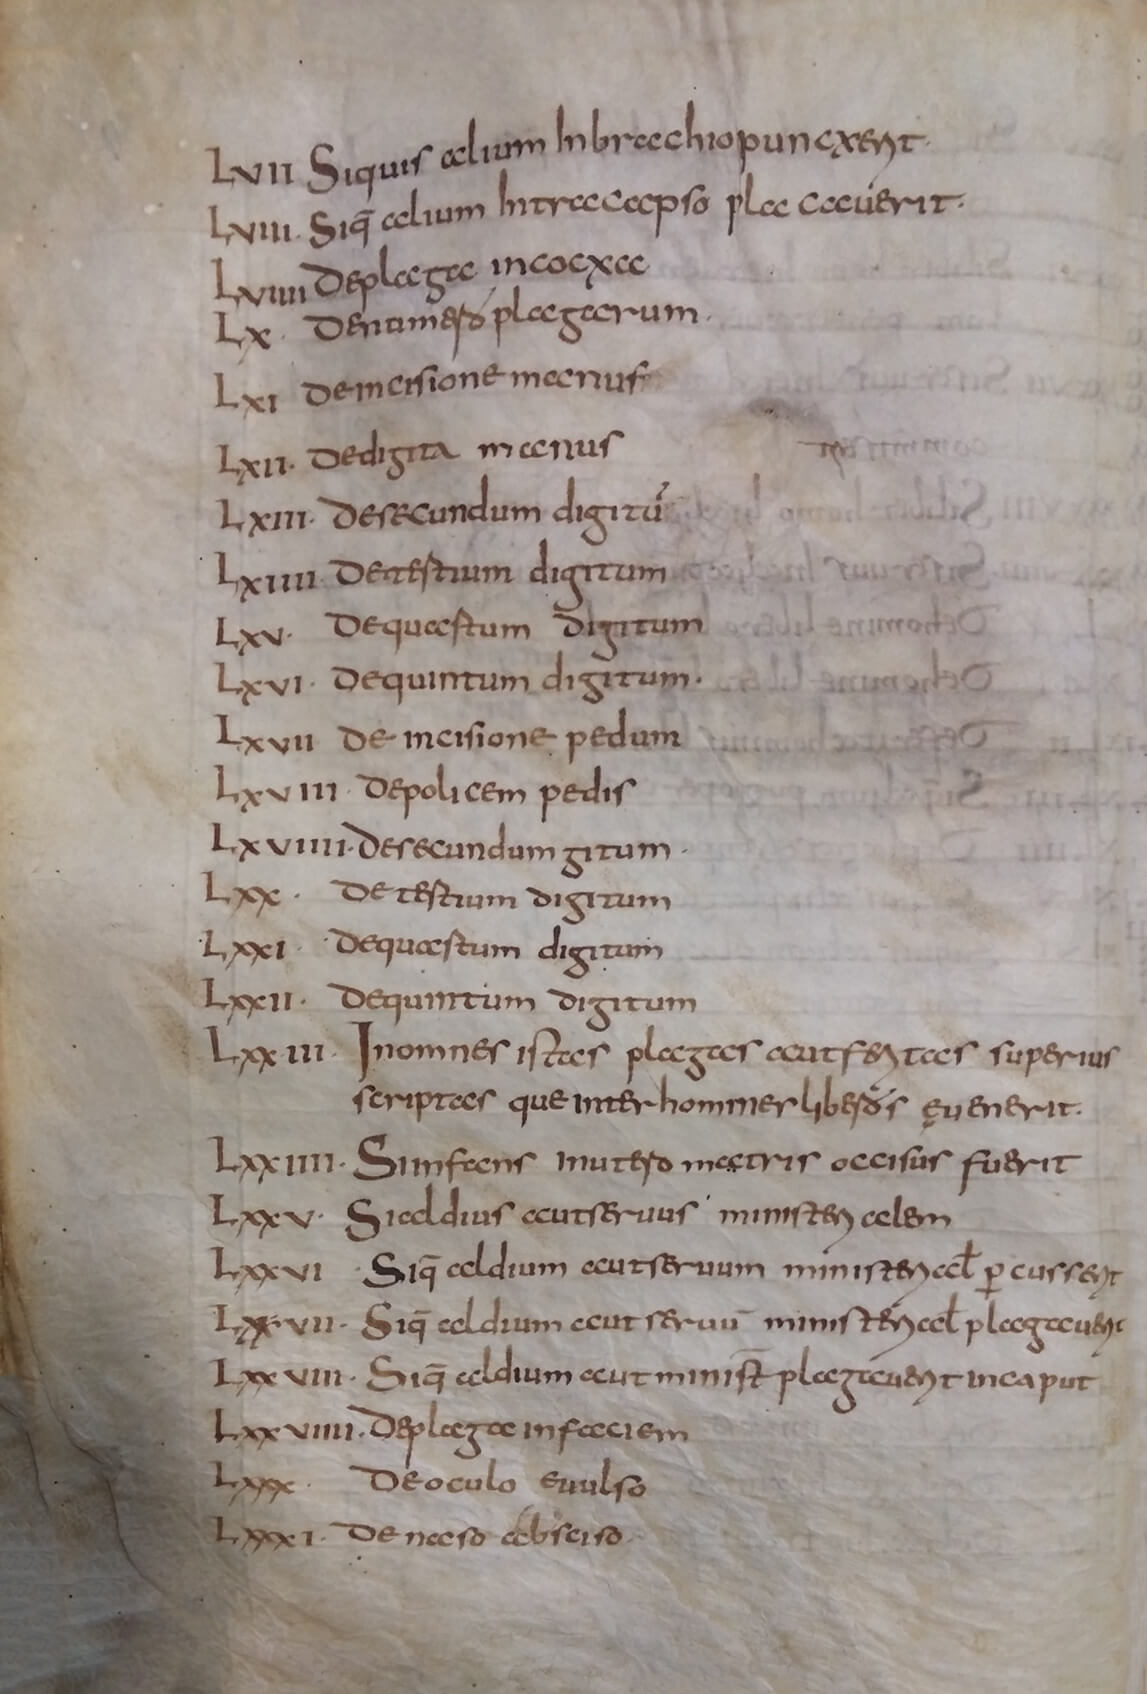 LVII Siquis alium In brachio puncxerit.
LVIII. Siq̄ alium Intra capso placaverit.
LVIIII De plaga in cocxa
LX. De numero plagarum.
LXI De incisione manus
LXII. De digita manus
LXIII. De secundum digitū
LXIIII De terstium digitum
LXV. De quarstum digitum
LXVI. De quintum digitum.
LXVII De incisione pedum
LXVIII. De policem pedis
LXVIIII. De secundum gitum.
LXX. De terstium digitum
LXXI. De quarstum digitum
LXXII. De quintum digitum
LXXIII. In omnes istas plagas aut feritas superius
scriptas que inter homines liberos ęvenerit.
LXXIIII. Si infans in utero matris occisus fuerit
LXXV. Si aldius aut servus ministerialem
LXXVI Siq̄ aldium aut servum ministerial̄ ꝑcusserit
LXXVII. Siq̄ aldium aut servū ministerial̄ plagaverit
LXXVIII. Siq̄ aldium aut minist̄ plagaverit in caput
LXXVIIII. De plaga in faciem
LXXX. De oculo evulso
LXXXI. De naso absciso